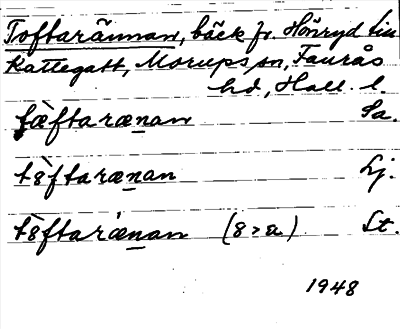 Toftarännan, bäck fr. Hönryd till
Kattegatt, Morups sn, Faurås
hd, Hall. l.
tæ̀ftarænan Sa.
t8̀ftarænan Lj.
t8̀ftaræ̀nan (8>a) St.
1948